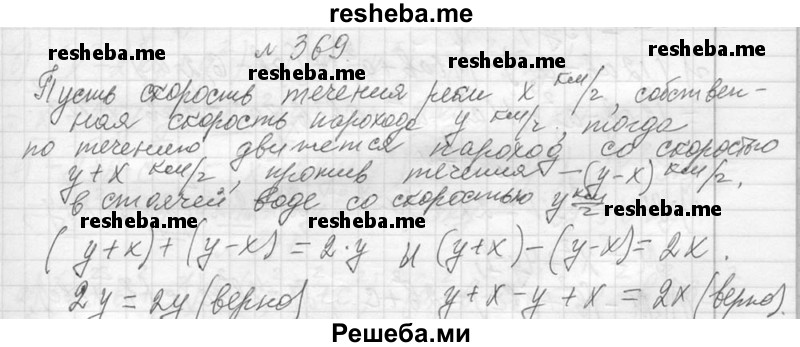 resheba.me
resheba.me
resheba.me
№ 369.
Пусть скорость течения реки x км/г, собствен-
ная скорость парохода y км/г, тогда
по течению движется пароход со скоростью
y+x км/г, против течения – (y-x) км/г,
в стоячей воде со скоростью y км/г
resheba.me
resheba.me
resheba.me
(y+x)+(y-x) = 2·y и (y+x)-(y-x)=2x.
2y=2y (верно) y+x-y+x = 2x (верно).
Решеба.ми